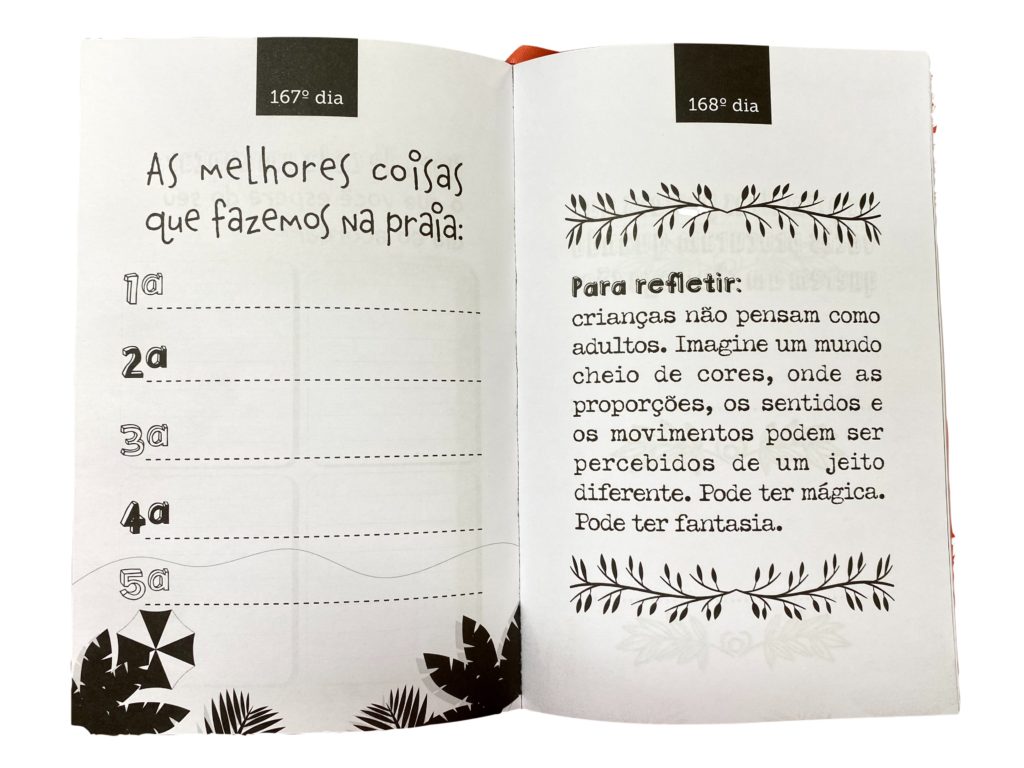 167º dia
As melhores coisas
que fazemos na praia:
1ª
2ª
3ª
4ª
5ª
168º dia
Para refletir:
crianças não pensam como
adultos. Imagine um mundo
cheio de cores, onde as
proporções, os sentidos e
os movimentos podem ser
percebidos de um jeito
diferente. Pode ter mágica.
Pode ter fantasia.